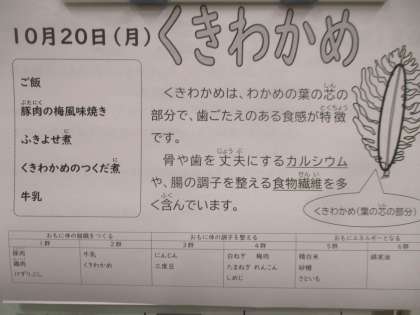 10月20日(月)
くきわかめ
ご飯
豚肉の梅風味焼き
ふきよせ煮
くきわかめのつくだ煮
牛乳
くきわかめは、わかめの葉の芯の
部分で、歯ごたえのある食感が特徴
です。
骨や歯を丈夫にするカルシウム
や、腸の調子を整える食物繊維を多
く含んでいます。
くきわかめ(葉の芯の部分)
おもに体の組織をつくる おもに体の調子を整える おもにエネルギーとなる
1群 2群 3群 4群 5群 6群
豚肉 牛乳 にんじん 白ねぎ 梅肉 精白米 綿実油
鶏肉 くきわかめ 三度豆 たまねぎ れんこん 砂糖
けずりぶし しめじ さといも